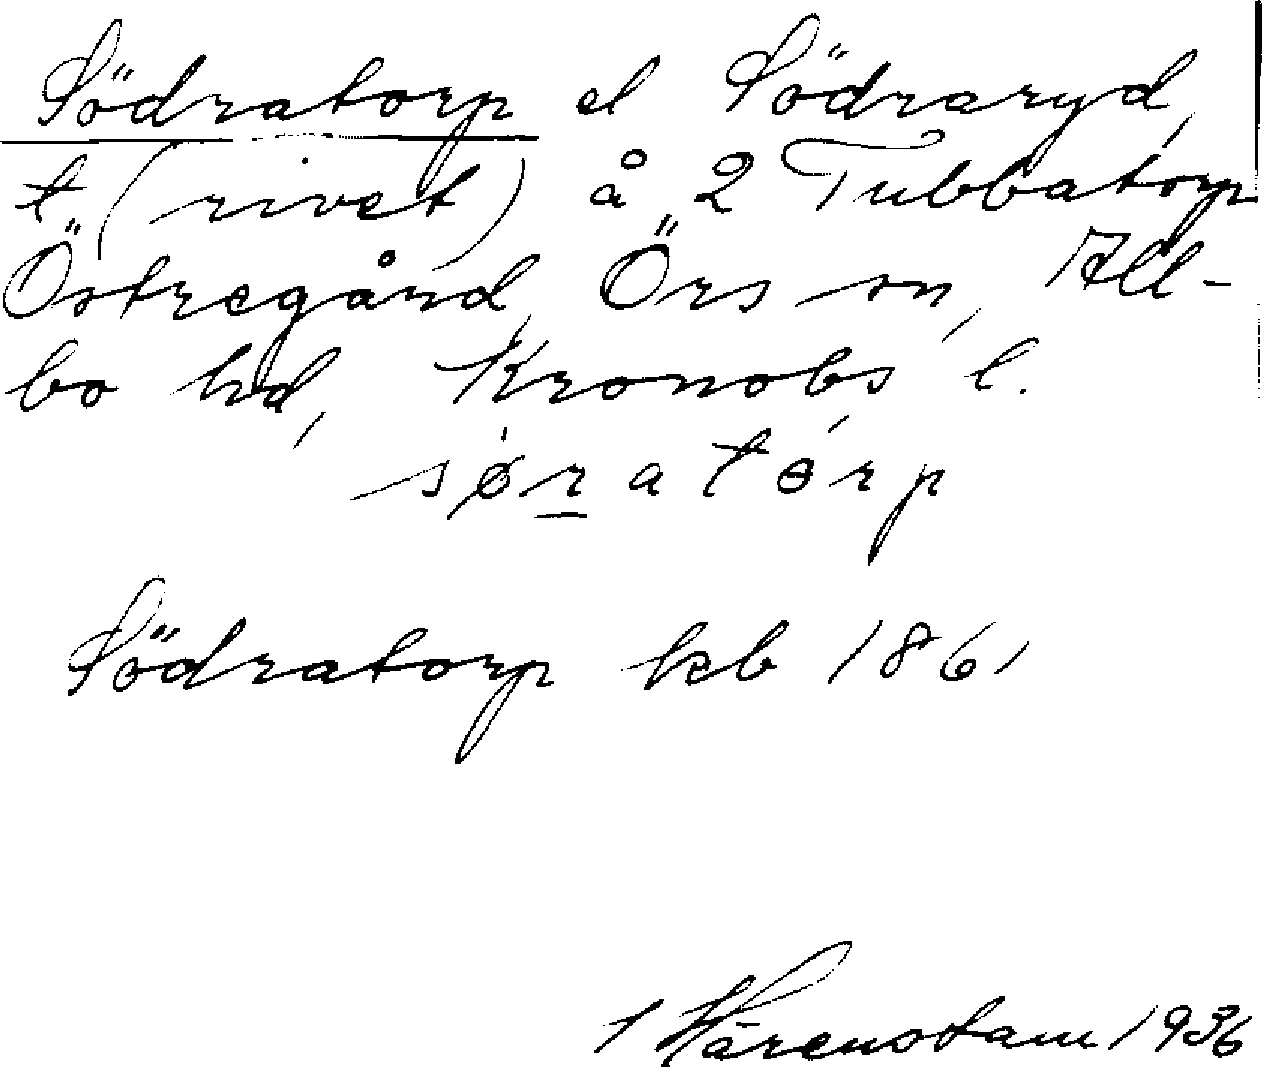 Södratorp el Södraryd,
t (rivet) å 2 Tubbatorp
Östregård, Örs sn, All-
bo hd, Kronobs l.
søratòrp
Södratorp kb 1861
Härenstam 1936